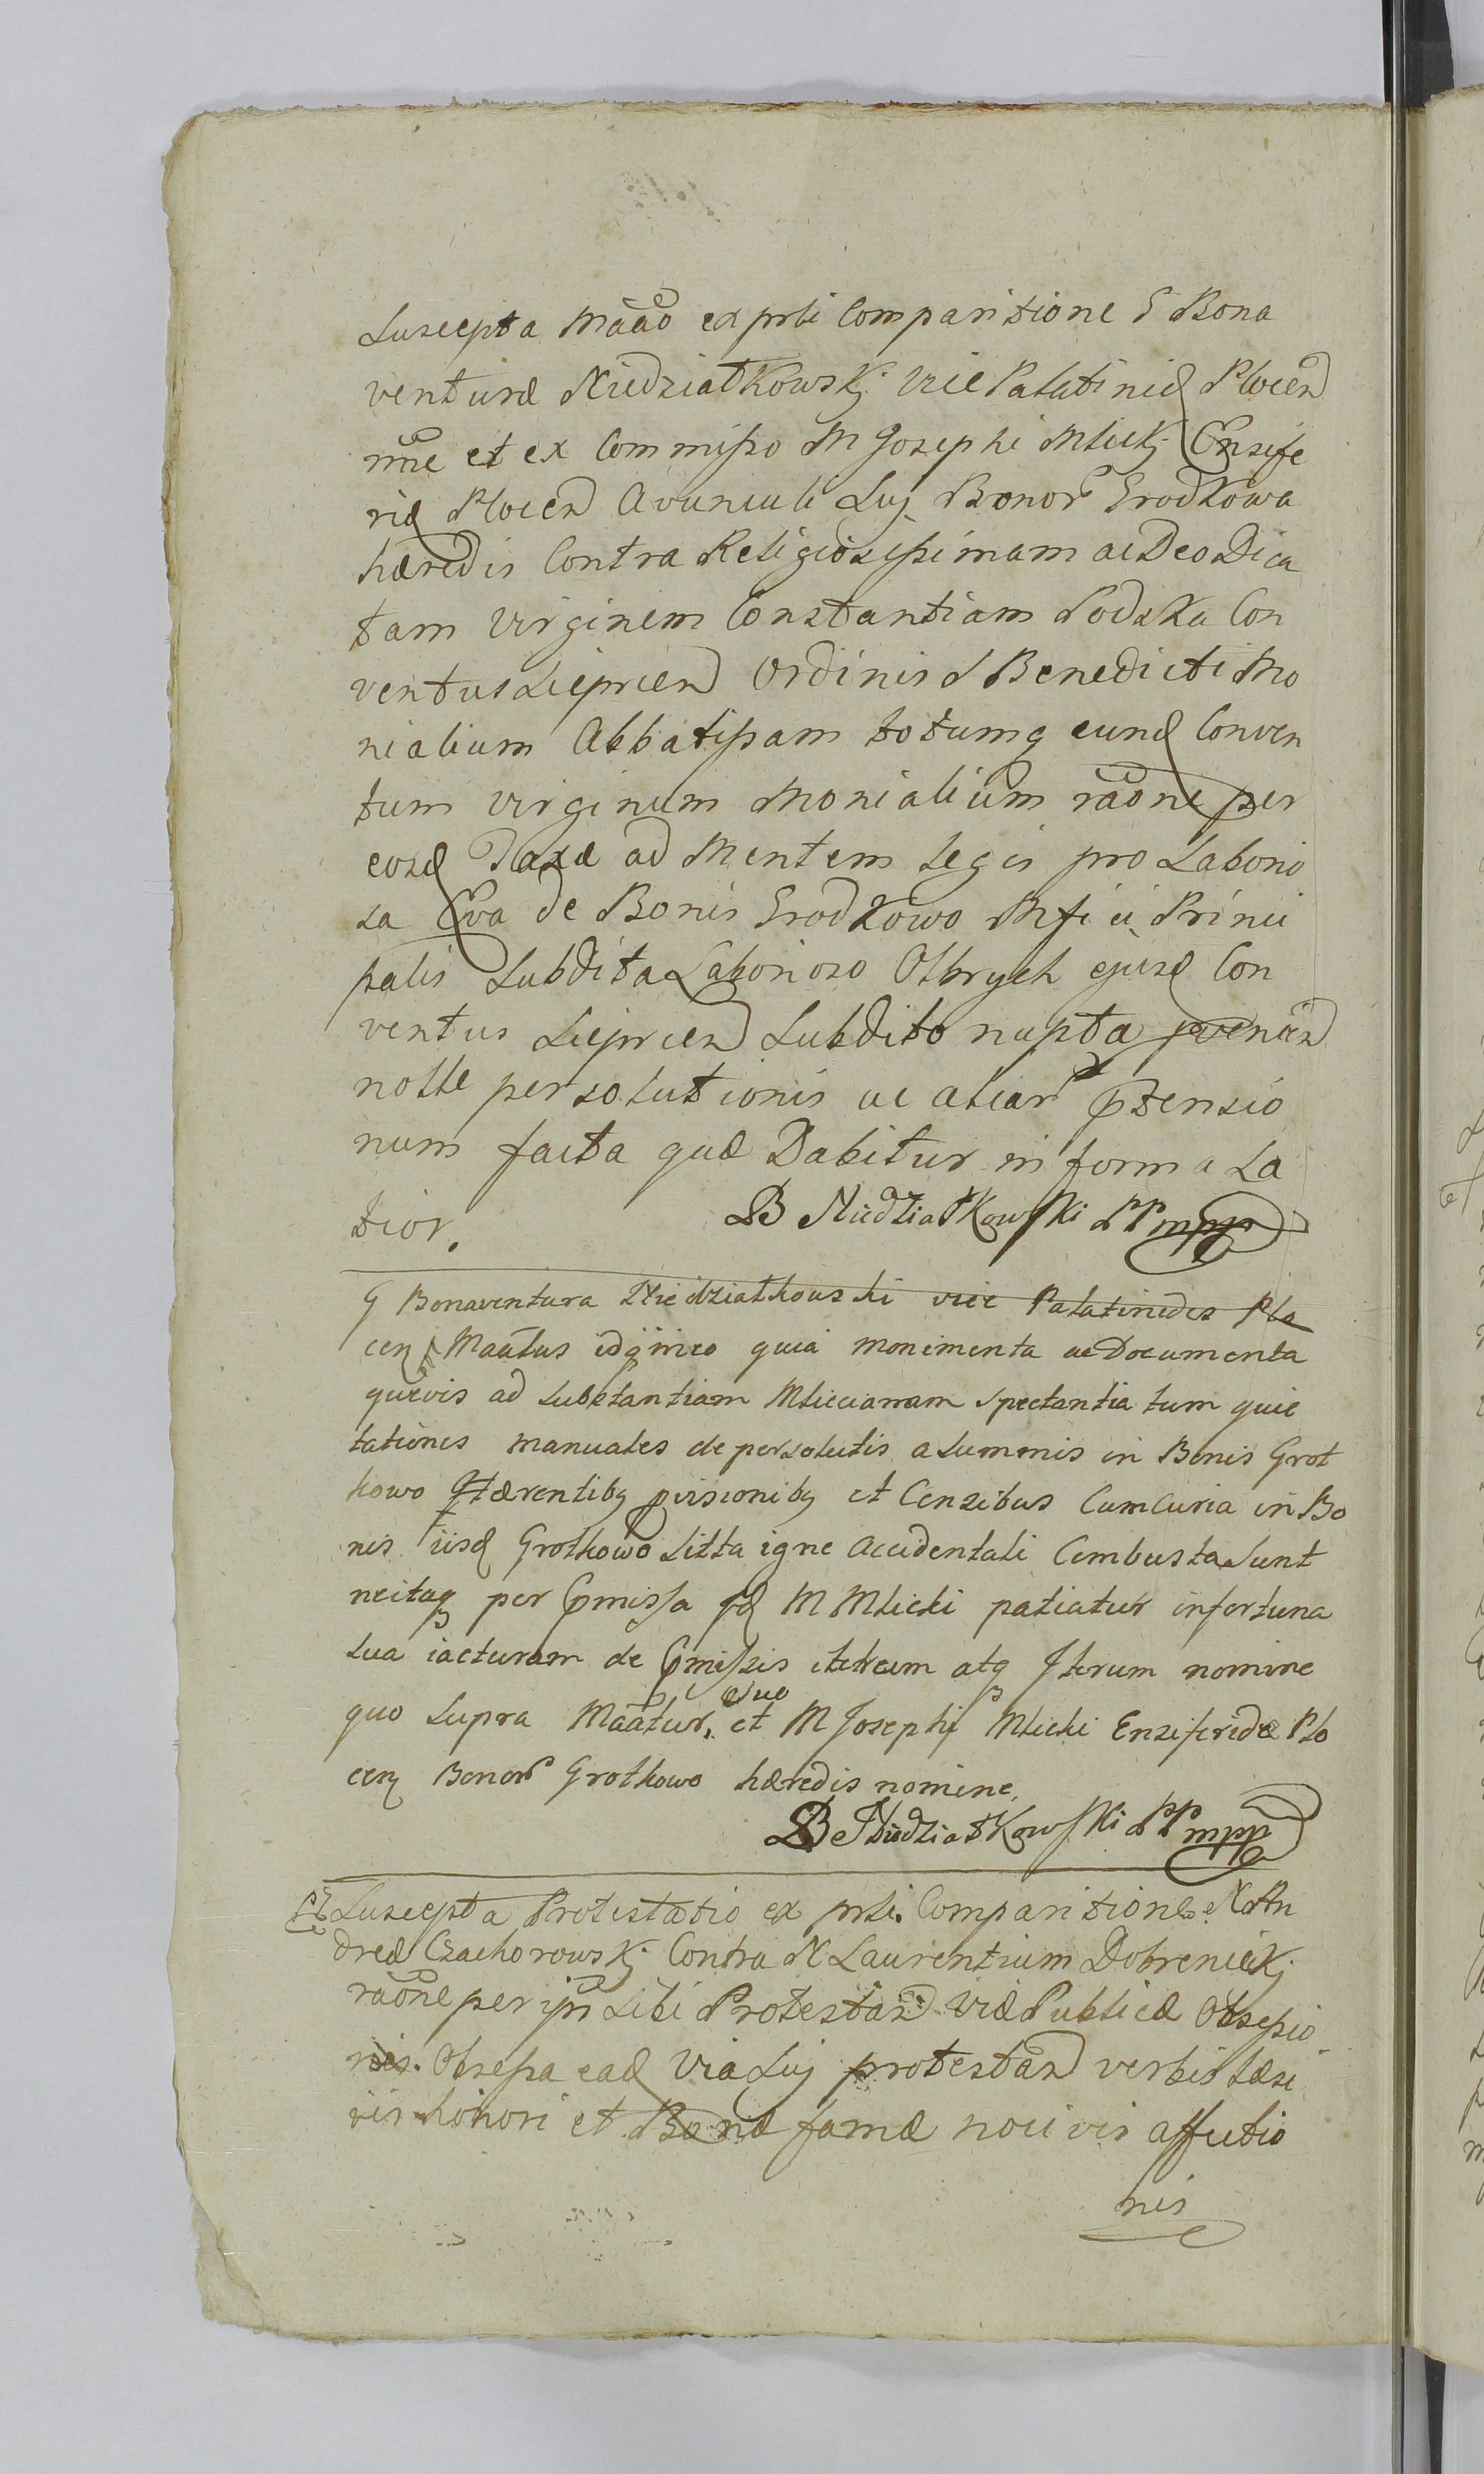 Suscepta Maãõ ex prli Comparitione G Bona
venturæ Niedziałkowskj Vice Palatinid Plocen
nñe et ex Commisso M Josephi Mlickj Ensife
rid Plocen Avunculi Suj Bonor Grodkowa
hæredis Contra Religiosissimam ac Deo Dica
tam Virginem Constantiam Podska Con
ventus Sieprcen Ordinis S Benedicti Mo
nialium Abbatissam totumq eund Conven
tum virginum Monialium rãõne per
eosd Taxæ ad Mentem Legis pro Laborio
sa Eva de Bonis Grodkowo Mfici Princi
palis Subdita Laborioso Olbrych ejusd Con
ventus Sieprcen Subdito nupta
nolle persolutionis ac aliar ptensio
num facta quæ Dabitur in forma La
tior.
B Niedziałkowski PP mpp
G Bonaventura Niedziałkowski vice Palatinides Plo
cen Maãtus idq ineo quia monimenta ac Documenta
quævis ad Substantiam Mliccianam Spectantia tum quie
tationes manuales de persolutis a Summis in Bonis Grot
kowo hærentibq pvisionibq et Censibus Cum Curia in Bo
nis iisd Grotkowo Sitta igne Accidentali Combusta Sunt
neitaq per pmissa M Mlicki patiatur infortuna
sua iacturam de pmissis iterum atq Iterum nomine
quo Supra Maãtur, suo et M Josephi Mlicki Ensiferidæ Plo
cen Bonor Grotkowo hæredis nomine.
B Niedziałkowski PP mpp
Suscepta Protestatio ex prli. Comparitione N An
dreæ Czachorowskj Contra N Laurentium Dobrenickj
rãõne per ipn Sibi Protestan Viæ Publicæ Obsessio
nis. Obsessa ead Via Suj protestan verbis Læsi
vis honori et Bonæ famæ nocivis affectio
nis